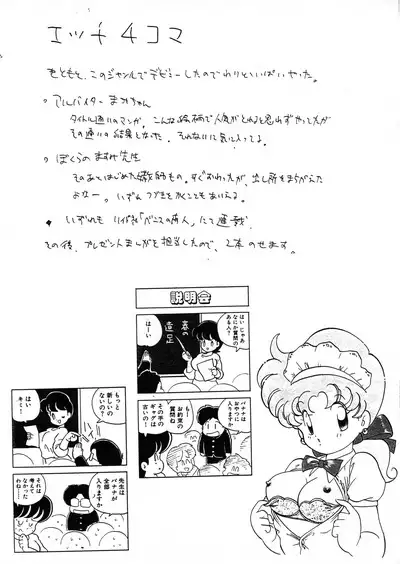 エッチ4コマ
もともと、このジャンルでデビューしたのでわりといっぱいやった。
。アルバイター まみちゃん
タイトル通りのマンガ。こんな絵柄で人気がとれると思わずやってたが
その通りの結果となった。それなりに気に入ってる。
。ぼくらの 先生
そのあとはじめた教師もの。すぐおわったが、出し所をまちがえた
よなー。いずれ つづきをかくこともありえる。
。いずれも 「 の商人」にて連載
その後、プレゼントまんがを担当したので、2本のせます。
説明会
春の遠足
はーい
はい じゃあ
なにか質問の
ある人?
バナナは
おやつに
入りますか
もー!
お約束の
質問ね
その手の
ギャグは
古いの!
もっと
新しいの
ないの!
はい
キミ!
先生は
バナナが
全部
入りますか
それは
考えて
なかった
わね…